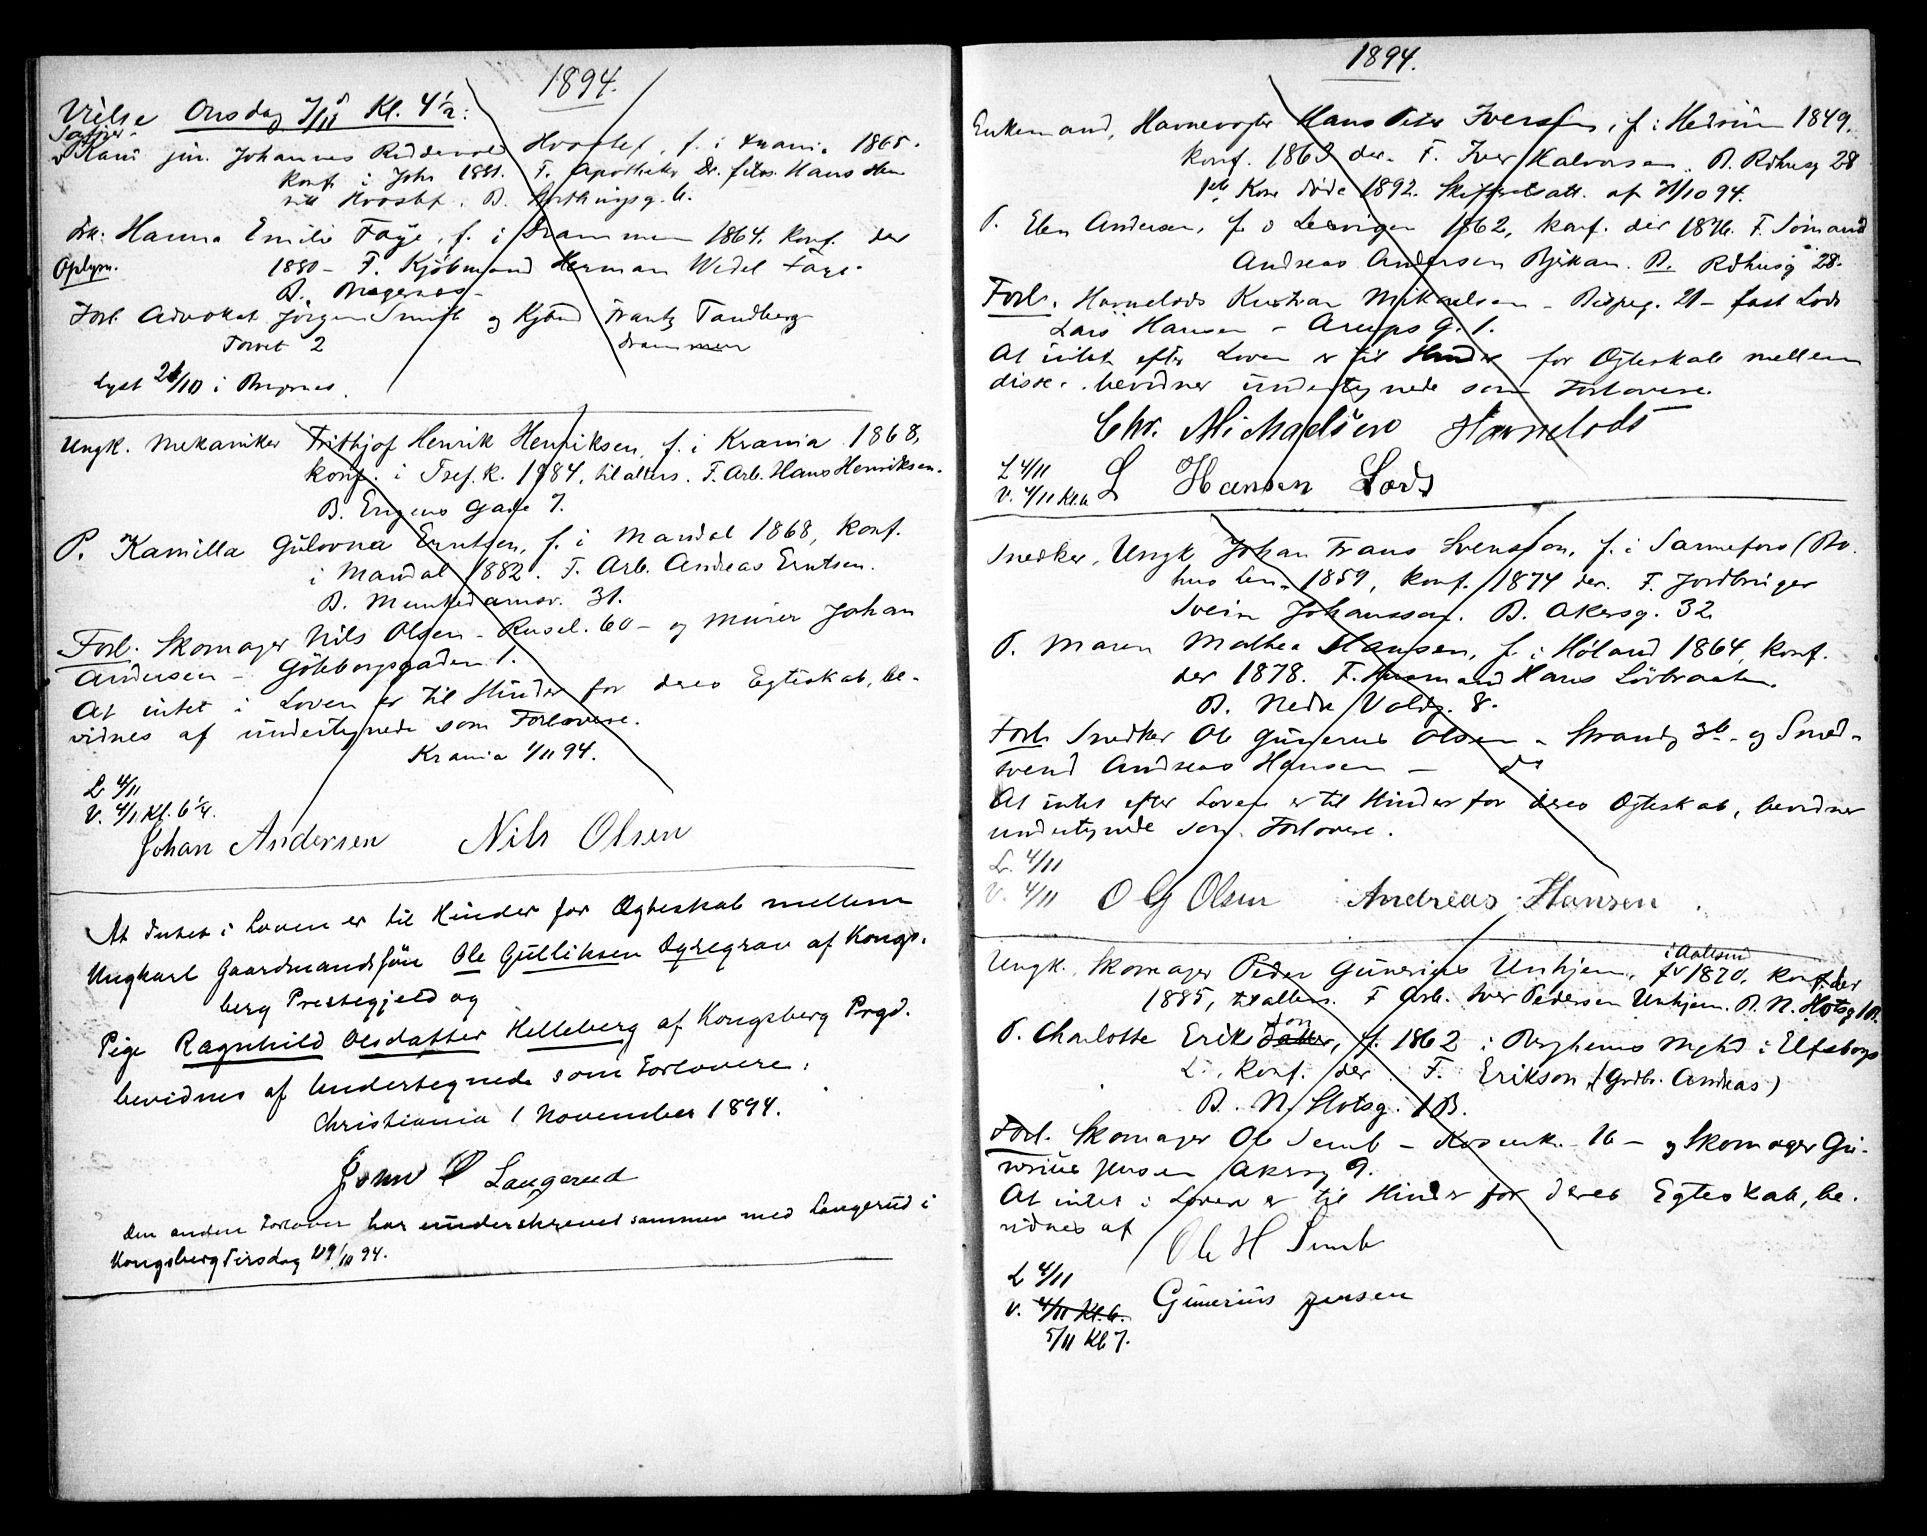 1894.
Vielse Onsdag 7/11 Kl. 4½:
Sagfører
Kand jur. Johannes Riddervold Hvoslef, f. i Krania 1865.
konf. i Joh. 1881. F. Apotheker Dr. filos. Hans Hen
rik Hvoslef. B. Storthingsg. 6.
Frk. Hanna Emilie Faye, f. i Drammen 1864. Konf. der
Oplysn. 1880 – F. Kjøbmand Herman Wedel Faye.
B. Bragernes –
Forl. Advokat Jørgen Smith og Kjøbmd Frantz Tandberg
Torvet 2 Drammen
Lyst 28/10 i Bragernes.
Ungk. Mekaniker Frithjof Henrik Henriksen, f. i Krania 1868,
konf. i Tref. k. 1884, til alters. F. Arb. Hans Henriksen.
B. Eugens Gade 7.
P. Kamilla Gulovna Erntsen, f. i Mandal 1868, konf.
i Mandal 1882. F. Arb. Andreas Erntsen.
B. Munkedamsv. 31.
Forl. Skomager Nils Olsen – Rusel. 60 – og Murer Johan
Andersen – Göteborgsgaden 1.
At intet i Loven er til Hinder for deres Egteskab, be-
vidnes af undertegnede som Forlovere.
Krania 1/11 94.
L. 4/11
V. 4/11 Kl. 6¼.
Johan Andersen Nils Olsen
At Intet i Loven er til Hinder for Ægteskab mellem
Ungkarl Gaardmandssøn Ole Gulliksen Dyregrav af Kongs-
berg Prestegjeld og
Pige Ragnhild Olsdatter Helleberg af Kongsberg Prgd.
bevidnes af Undertegnede som Forlovere:
Christiania 1 November 1894.
John O Langerud
Den anden Forlover har underskrevet sammen med Langerud i
Kongsberg Tirsdag 94.
1894.
Enkemand, Havnevogter Hans Peter Iversen, f. i Hedrum 1849.
konf. 1863 der. F. Iver Halvorsen. B. Rdhusg 28
1ste Kone døde 1892. Skifteratt. af 31/10 94.
P. Elen Andersen, f. 1862, konf. der 1876. F. Sømand
Andreas Andersen B. Rdhusg 28.
Forl. Havnelods Kristian Mikaelsen – 21 – fast Lods
Lars Hansen – Arups G. 1.
At intet efter Loven er til Hinder for Egteskab mellem
disse, bevidner undertegnede som Forlovere.
Chr. Michaelsen Havnelods
L 4/11
V. 4/11 Kl. 6 L Hansen Lods
Snedker, Ungk Johan Frans Svensson, f. i Sannefors (Bo.
hus Len 1859, konf. 1874 der. F. Jordbruger
Svein Johansson. B. Akersg. 32
P. Maren Mathea Hansen, f. i Høland 1864, konf.
der 1878. F. Husmand Hans Lörbraaten.
B. Nedre Voldg. 8.
Forl. Snedker Ole Gunerius Olsen – Strandg 36 – og Smed-
svend Andreas Hansen – do
At intet efter Loven er til Hinder for deres Egteskab, bevidner
undertegnede som Forlovere.
L. 4/11
V. 4/11 O G Olsen Andreas Hansen.
i Aalesund
Ungk. Skomager Peder Gunerius Unhjem, f 1870, konf. der
1885, til alters. F Arb. Iver Pedersen Unhjem. B. N. Slotsg 1B.
son
P. Charlotte Eriksdatter, f. 1862 i Berghems i Elfsborgs
L., konf. der. F. Erikson (Grdbr. Andreas)
B. N. Slotsg. 1B.
Forl. Skomager Ole Semb – Rosenk. 16 – og Skomager Gu-
nerius Jensen Akersg 9.
At intet i Loven er til Hinder for deres Egteskab, be-
vidnes af
Ole H Semb
L 4/11
V. 4/11 Kl. 6. Gunerius Jensen
5/11 Kl 7.